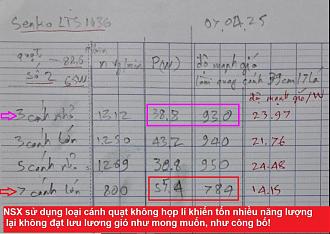 Senko LTS 1636 07.04.25
số 2 65W
n vg/min P(W) độ mạnh gió
39cm/7lá độ mạnh gió/W
3 cánh nhỏ 1312 38,3 930 23.97
3 cánh lớn 1250 43,2 940 21,76
5 cánh nhỏ 1269 38,8 950 24,48
7 cánh lớn 800 55,4 784 14,15
NSX sử dụng loại cánh quạt không họp lí khiến tốn nhiều năng lượng
lại không đạt lưu lượng gió như mong muốn, như công bố!